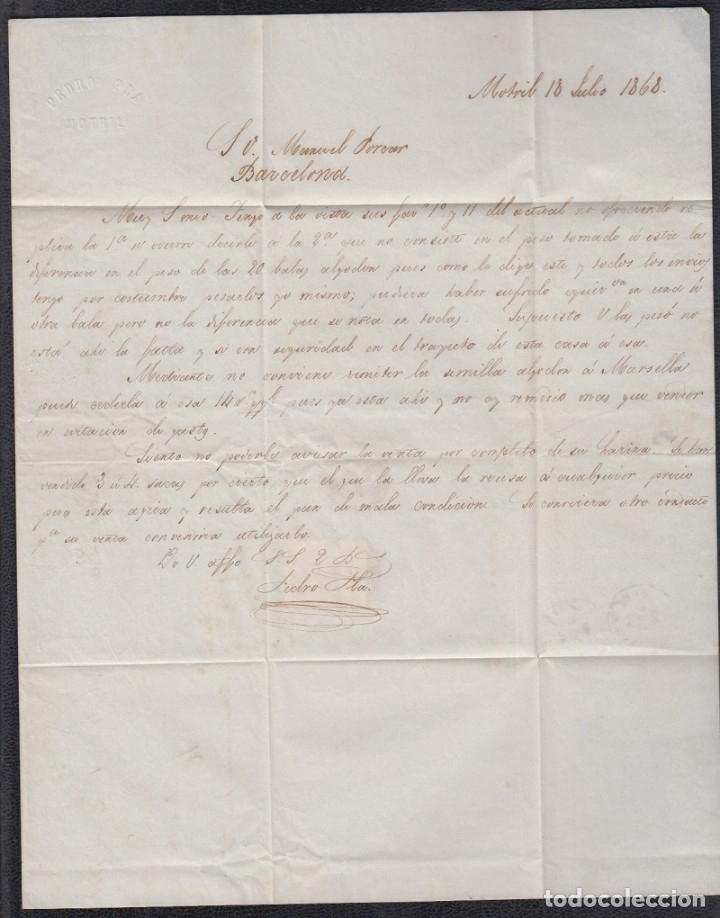 PEDRO PLA
MOTRIL
Motril 18 Julio 1868.
S. D. Manuel Porcar
Barcelona.
Muy S. mio Tengo a la vista sus fav.s 1º y 11 del actual no ofreciendo re
plica la 1ª se ocurre decirle à la 2ª que no consiste en el peso tomado à esta la
diferencia en el peso de las 20 balas algodon pues como le digo este y todos los envios
tengo por costumbre pesarlos yo mismo; pudiera haber sufrido en una ó
otra bala pero no la diferencia que se nota en todas. Supuesto V las pesó no
está ahi la falta y si con seguridad en el trayecto de esta casa á esa.
Mediante no conviene remitir la semilla algodon á Marsella
puede cederla á esa 14 pues ya esta ahi y no ay remedio mas que vender
en evitacion de gastos.
Siento no poderle avisar la venta por completo de su harina. Se han
vendido 3 ú 4 sacas por cierto, que el que la lleva la recusa á cualquier precio
pues esta agria y resulta el pan de mala condicion. Si conviera otro contacto
pª su venta convendria utilizarlo.
De V. affo S. S. Q B
Pedro Pla.
todocoleccion.net